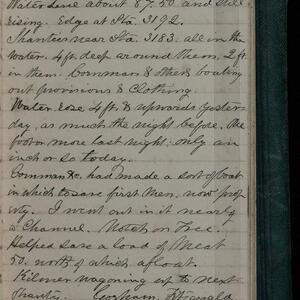 Water Line about 87.50 and still
rising. Edge at Sta. 3192.
Shanties near Sta. 3183. all in the
water. 4 ft. deep around them. 2 ft.
in them. Gorman & others boating
out provisions & Clothing.
Water rose 4 ft. & upwards yester-
day, as much the night before. One
foot or more last night, only an
inch or so today.
Gorman &c. had made a sort of boat
in which to save first Men, now prop-
erty. I went out in it nearly
to Channel. Notch on Tree.
Helped save a load of Meat
50. north of which afloat.
Kilmer wagoning up to next
Shanty. Gorham, Fitzgerald